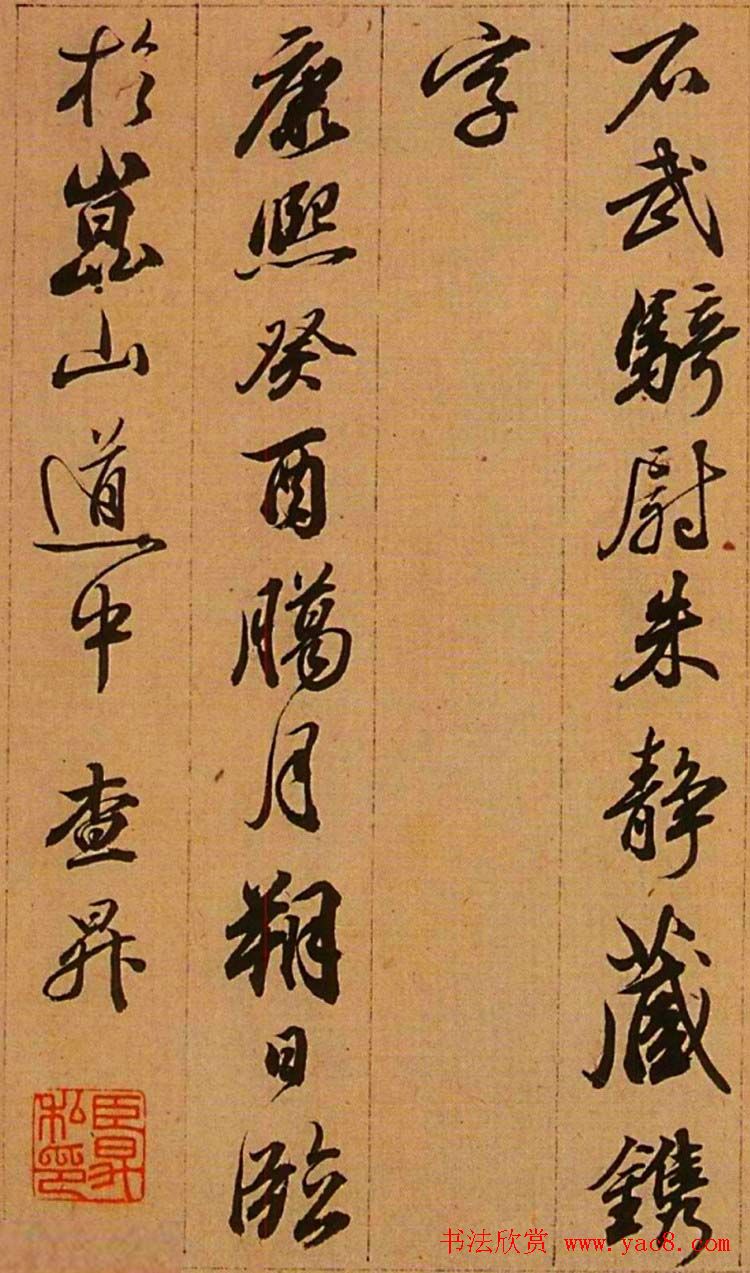 石武騎尉朱靜藏鐫
字
康熙癸酉臈月朔日臨
於崑山道中 查昇
臣昇私印
书法欣赏 www.yac8.com